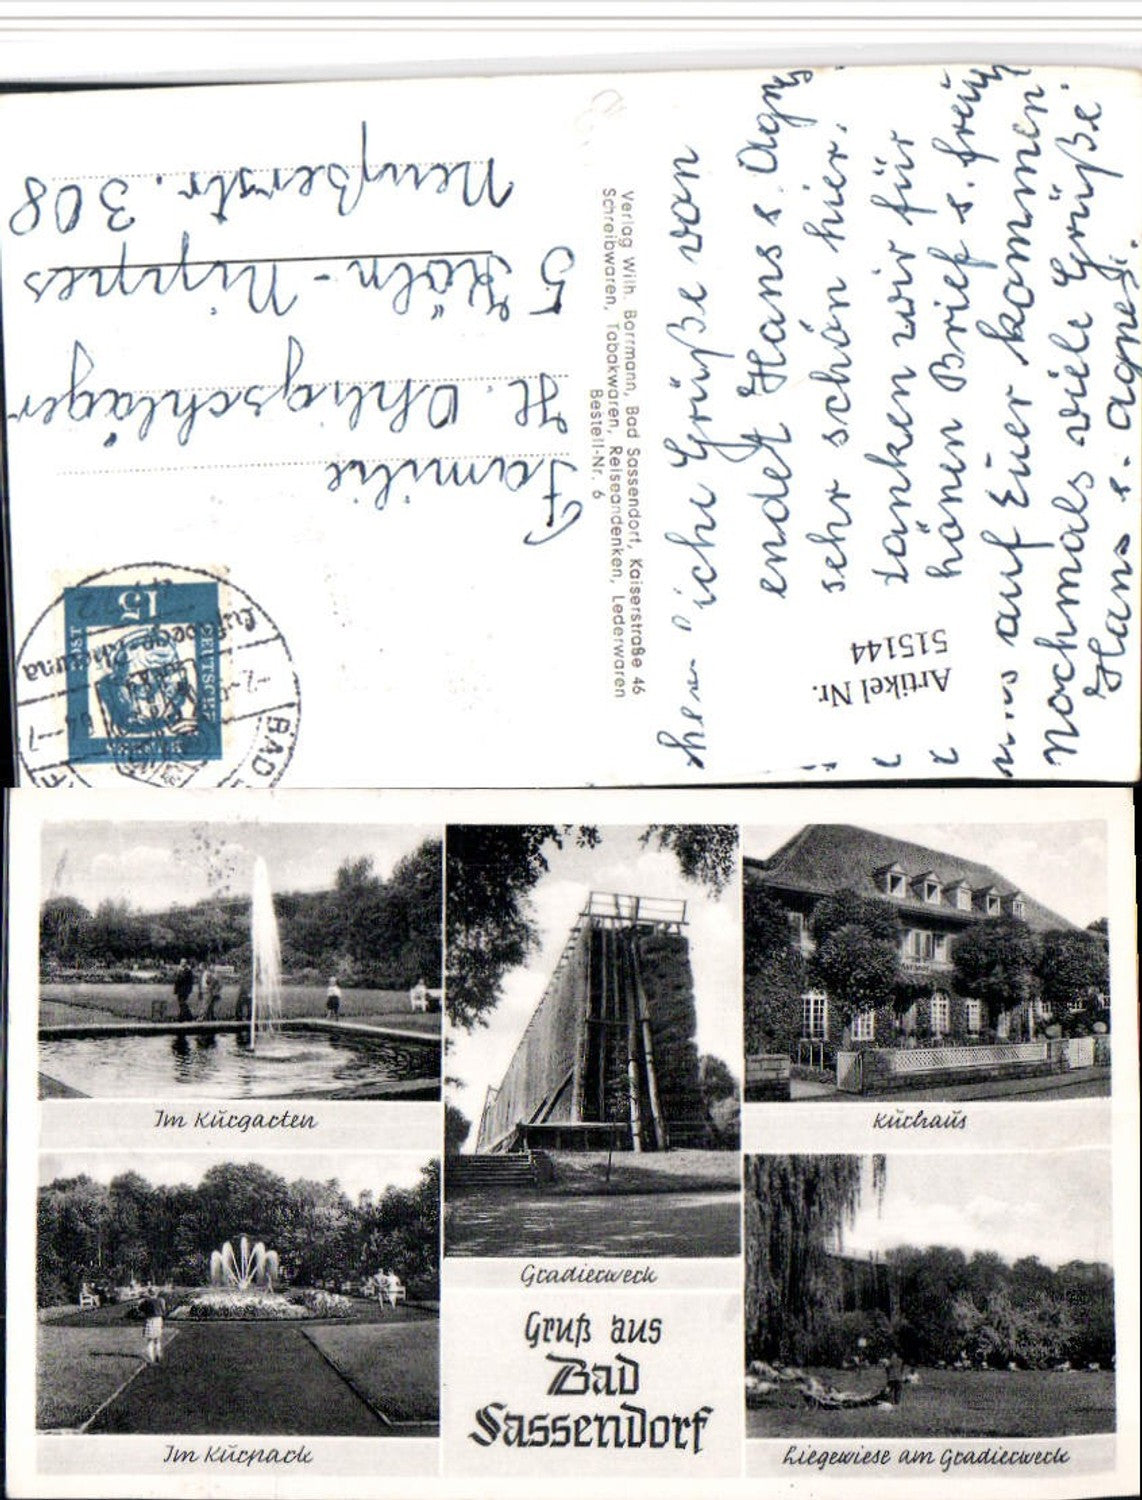 Familie
H. Ohligschläger
5 Köln-Nippes
Neußerstr. 308
DEUTSCHE
15
BAD
-7.
64--7
Verlag Wilh. Borrmann, Bad Sassendorf, Kaiserstraße 46
Schreibwaren, Tabakwaren, Reiseandenken, Lederwaren
Bestell-Nr. 6
iche Grüße von
endet Hans s. Agnes
sehr schön hier.
tanken wir für
hönen Brief s. freu
uns auf Euer kommen
Nochmals viele Grüße
Hans s. Agnes.
Artikel Nr.
515144
Im Kurgarten
Gradierwerk
Kurhaus
Im Kurpark
Gruß aus
Bad
Sassendorf
Liegewiese am Gradierwerk